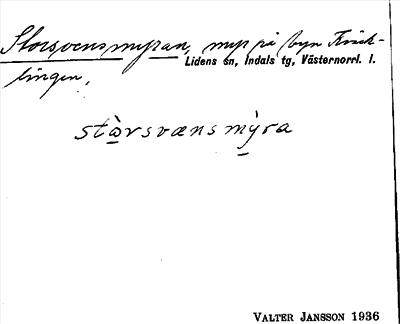 Storsvensmyran, myr på byn Kväck-
Lidens sn, Indals tg, Västernorrl. l.
lingen,
stòrsvænsmỳra
VALTER JANSSON 1936